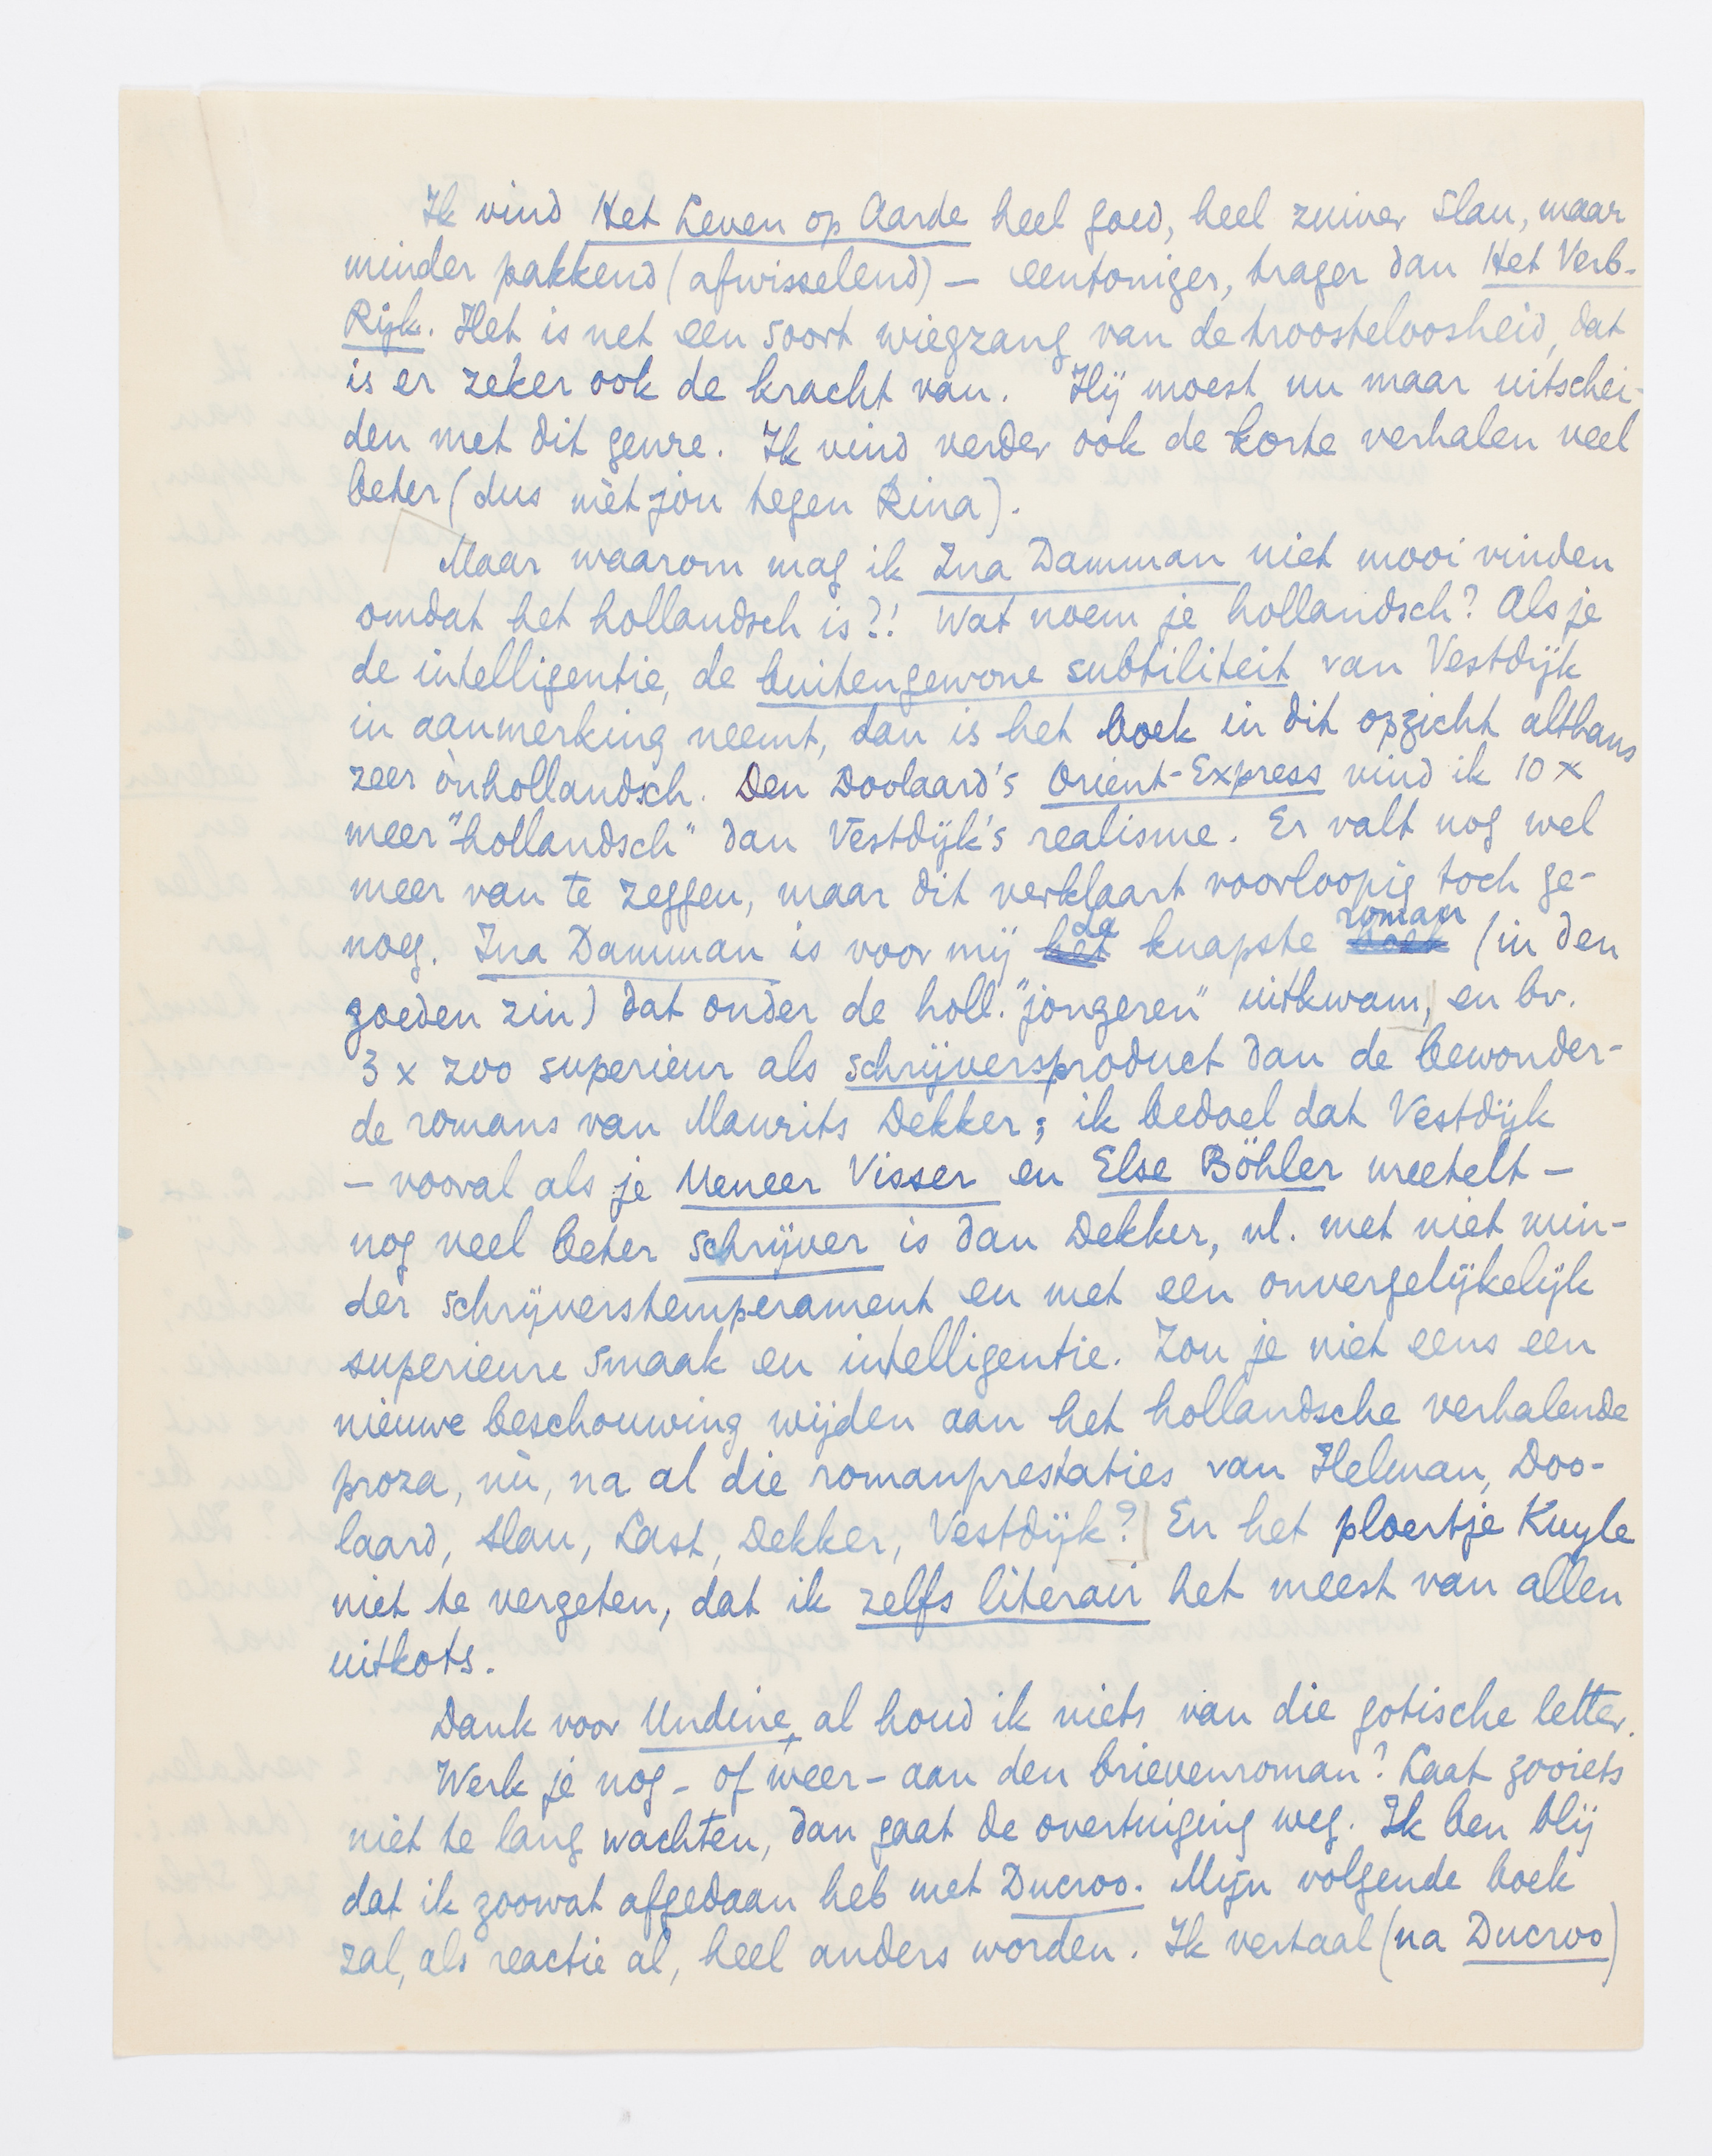 Ik vind Het Leven op Aarde heel goed, heel zuiver Slau, maar
minder pakkend (afwisselend) — eentoniger, trager dan Het Verb-
Rijk. Het is net een soort wiegzang van de troosteloosheid, dat
is er zeker ook de kracht van. Hij moest nu maar uitschei-
den met dit genre. Ik vind verder ook de korte verhalen veel
beter (dus mèt jou tegen Rina).
Maar waarom mag ik Ina Damman niet mooi vinden
omdat het hollandsch is?! Wat noem je hollandsch? Als je
de intelligentie, de buitengewone subtiliteit van Vestdijk
in aanmerking neemt, dan is het boek in dit opzicht althans
zeer ònhollandsch. Den Doolaard's Orient-Express vind ik 10 x
meer "hollandsch" dan Vestdijk's realisme. Er valt nog wel
meer van te zeggen, maar dit verklaart voorloopig toch ge-
noeg. Ina Damman is voor mij het de knapste boek roman (in den
goeden zin) dat onder de holl. "jongeren" uitkwam, en bv.
3 x zoo superieur als schrijversproduct dan de bewonder-
de romans van Maurits Dekker; ik bedoel dat Vestdijk
— vooral als je Meneer Visser en Else Böhler meetelt —
nog veel beter schrijver is dan Dekker, nl. met niet min-
der schrijverstemperament en met een onvergelijkelijk
superieure smaak en intelligentie. Zou je niet eens een
nieuwe beschouwing wijden aan het hollandsche verhalende
proza, nù, na al die romanprestaties van Helman, Doo-
laard, Slau, Last, Dekker, Vestdijk? En het ploertje Kuyle
niet te vergeten, dat ik zelfs literair het meest van allen
uitkots.
Dank voor Undine, al houd ik niets van die gotische letter.
Werk je nog – of weer – aan den brievenroman? Laat zooiets
niet te lang wachten, dan gaat de overtuiging weg. Ik ben blij
dat ik zoowat afgedaan heb met Ducroo. Mijn volgende boek
zal, als reactie al, heel anders worden. Ik vertaal (na Ducroo)